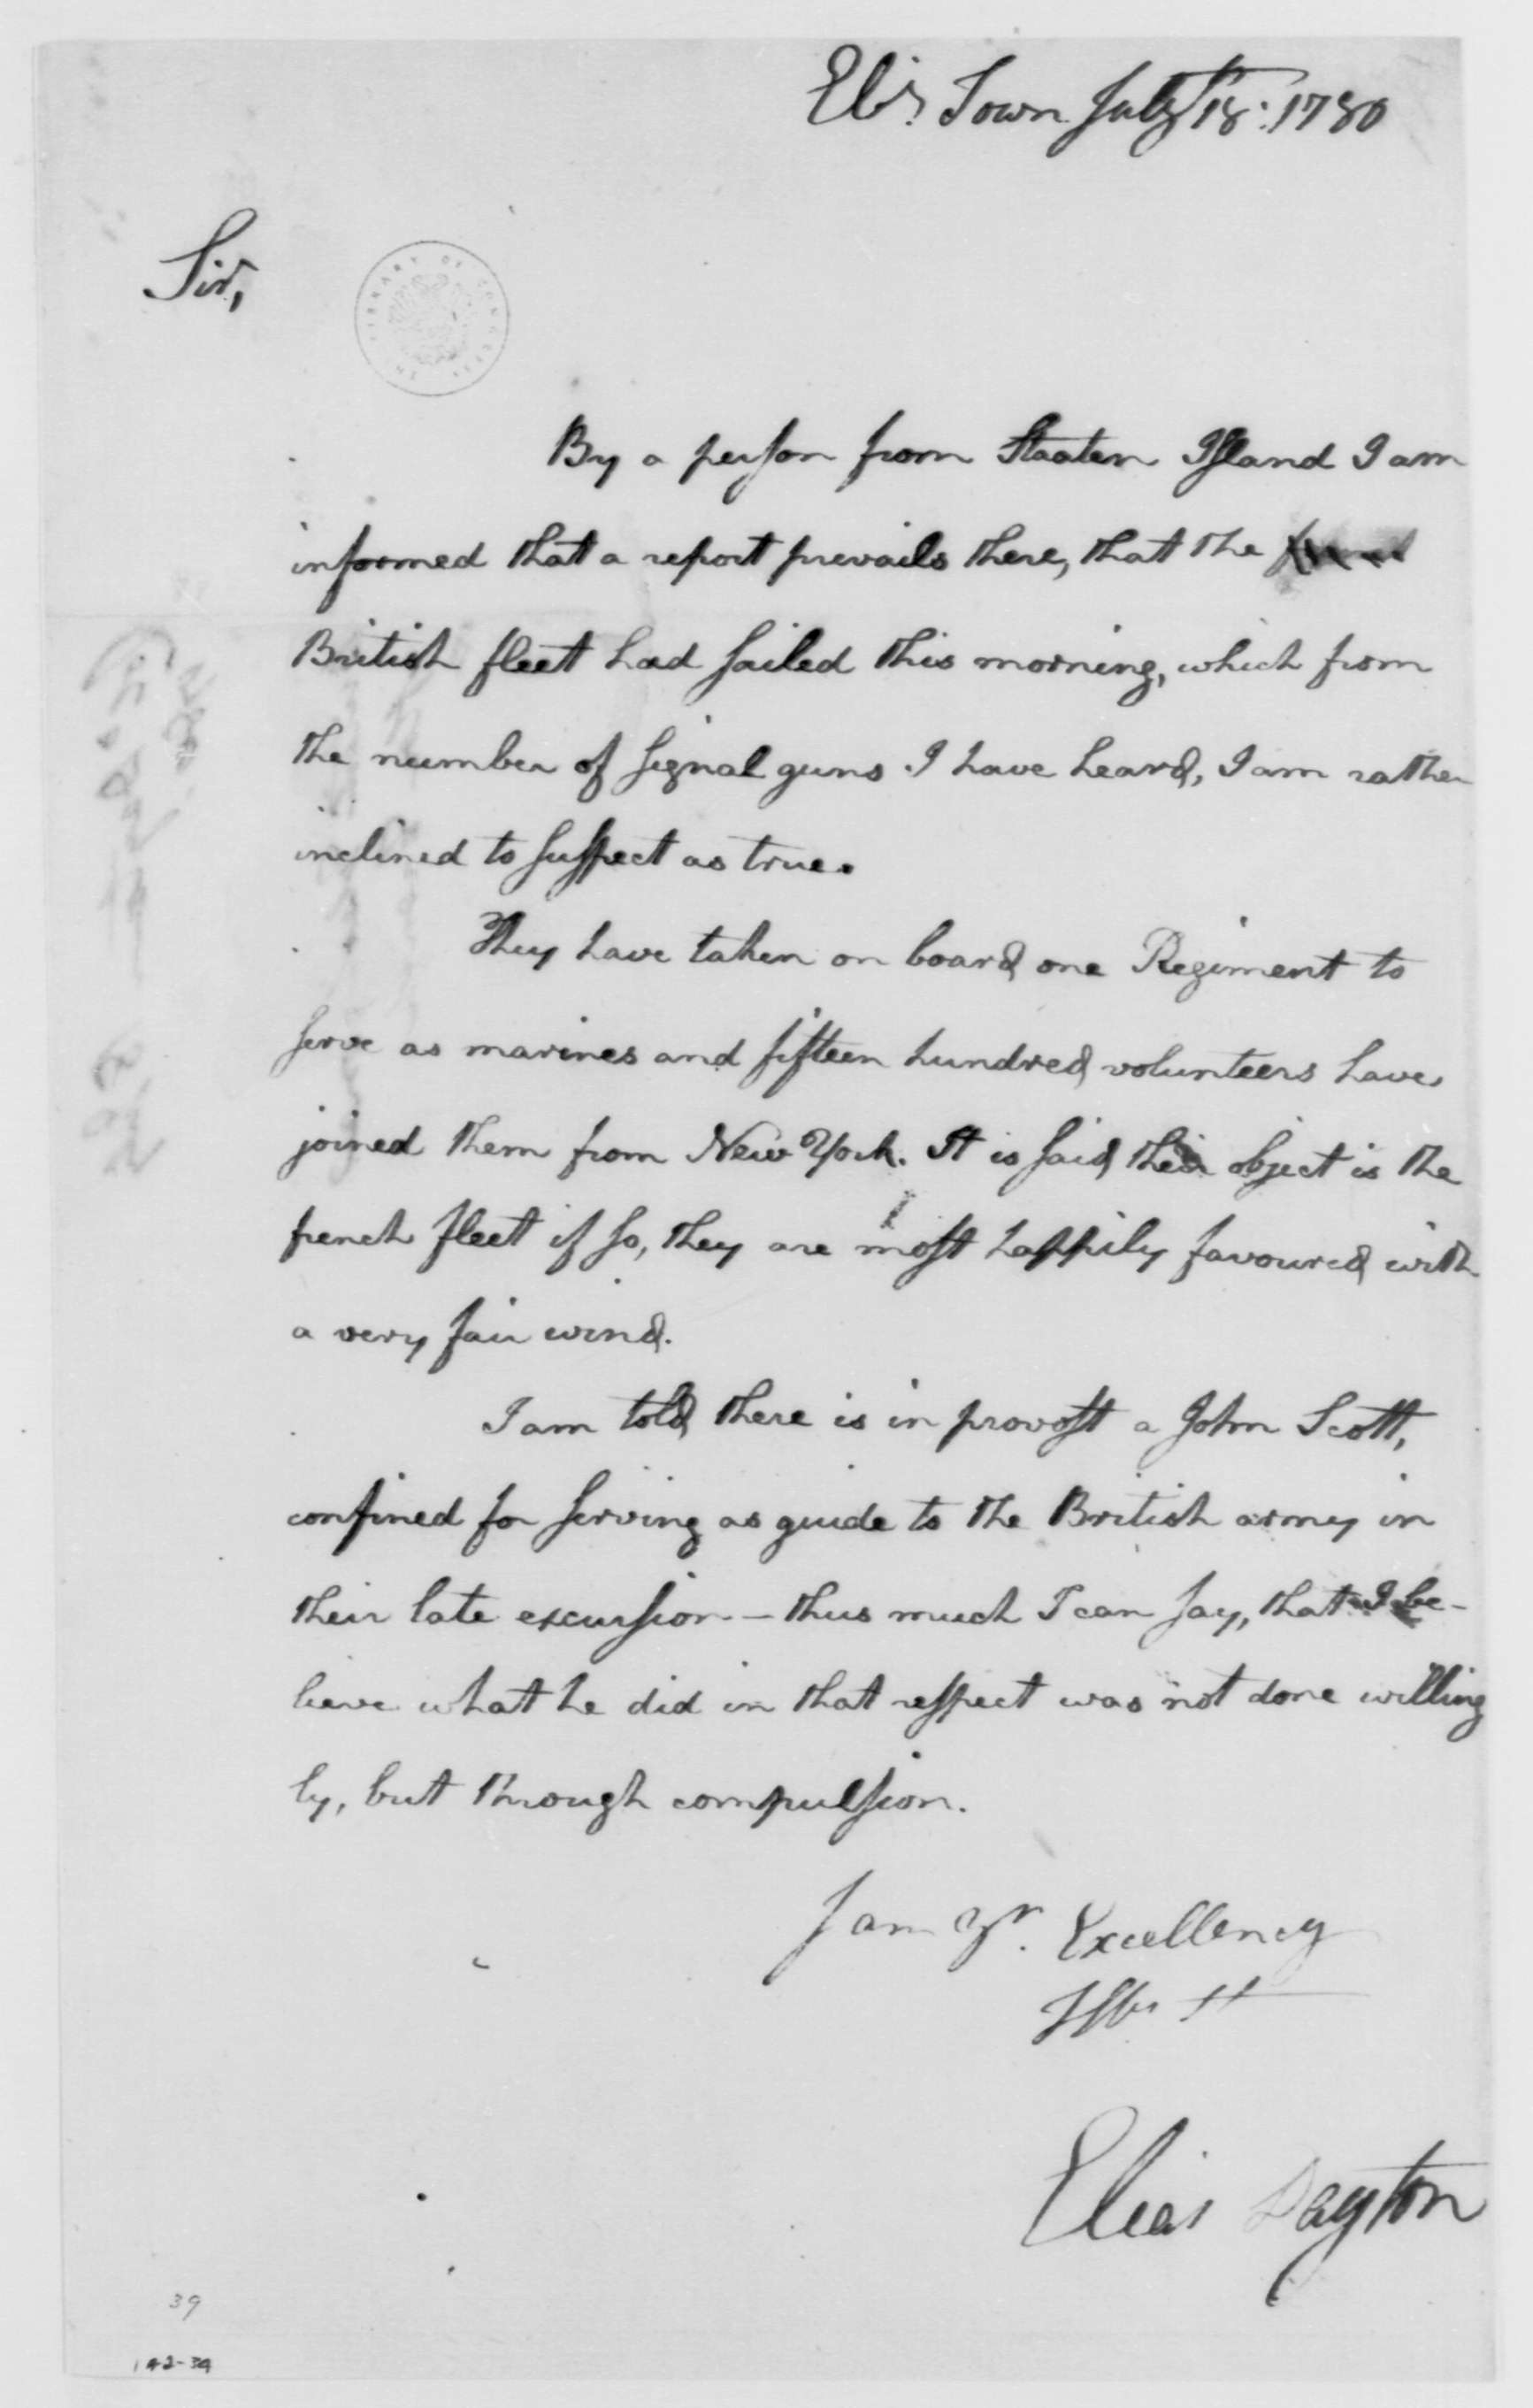 Elis. Town July 18th: 1780
Sir,
THE LIBRARY OF CONGRESS
By a person from Staaten Island I am
informed that a report prevails there, that the
British fleet had sailed this morning, which from
the number of signal guns I have heard, I am rather
inclined to suspect as true.
They have taken on board one Regiment to
serve as marines and fifteen hundred volunteers have
joined them from New York. It is said their object is the
french fleet if so, they are most happily favoured with
a very fair wind.
I am told there is in provost a John Scott,
confined for serving as guide to the British army in
their late excursion – thus much I can say, that I be-
lieve what he did in that respect was not done willing
ly, but through compulsion.
I am Yr. Excellency
Elias Dayton
39
142-39